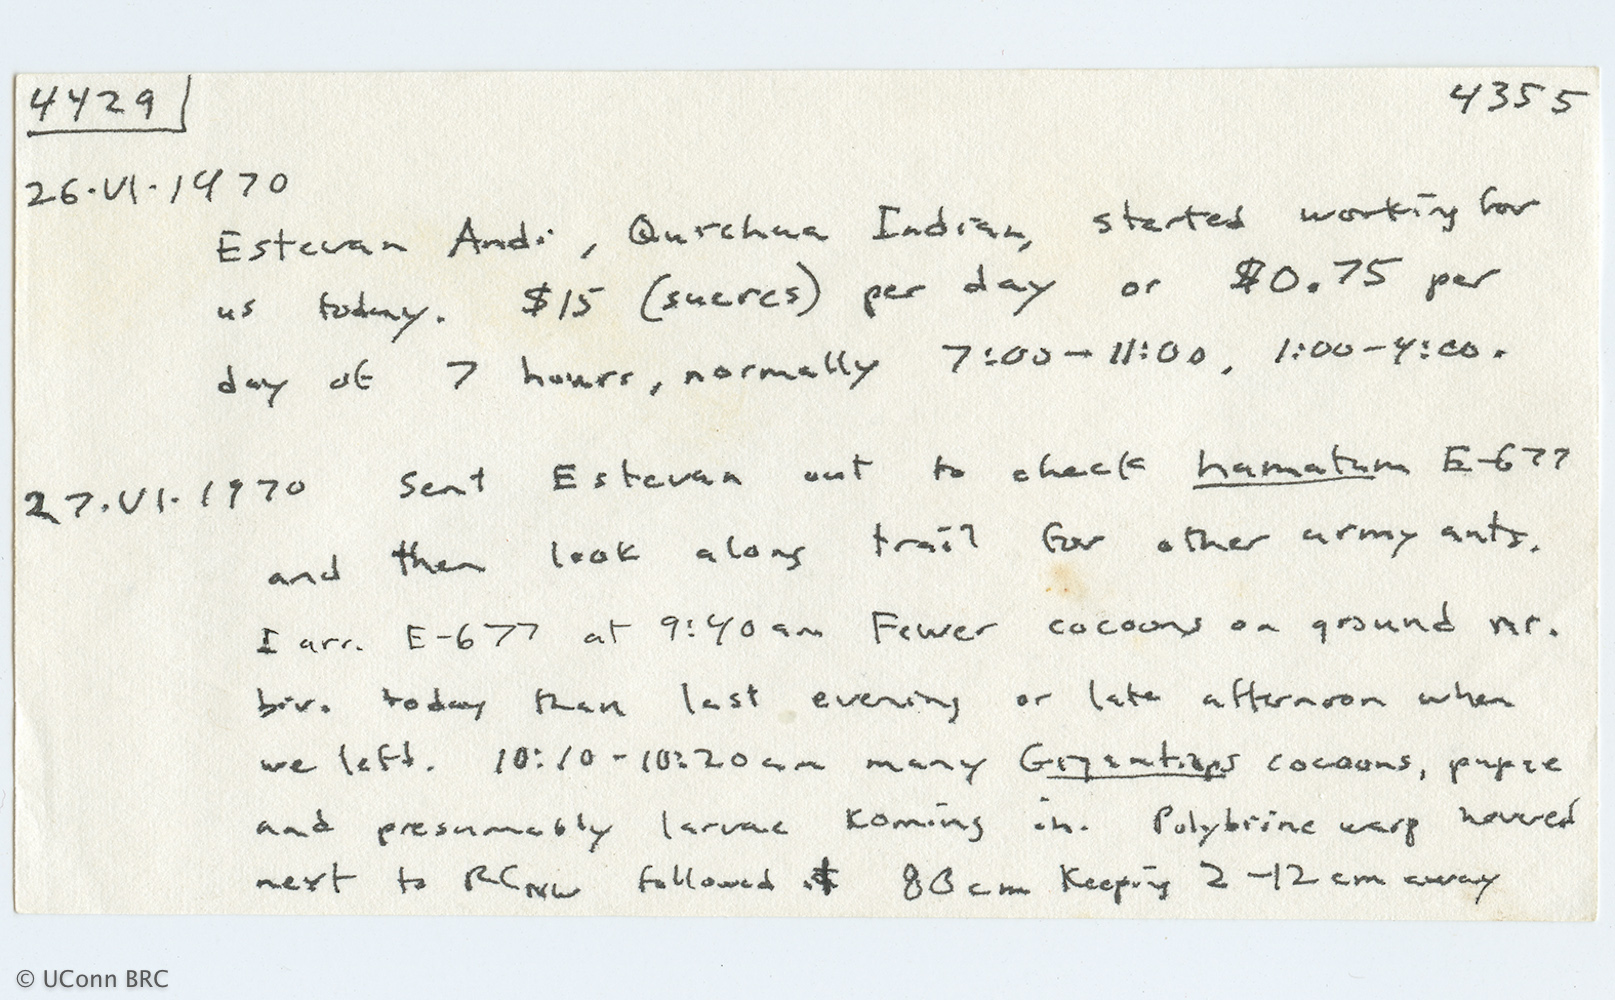 4429 4355
26·VI·1970
Estevan Andi, Qurchua Indian, started working for
us today. $15 (sucres) per day or $0.75 per
day of 7 hours, normally 7:00-11:00, 1:00-4:00.
27·VI·1970 Sent Estevan out to check hamatum E-677
and then look along trail for other army ants.
I arr. E-677 at 9:40am Fewer cocoons on ground nr.
biv. today than last evening or late afternoon when
we left. 10:10-10:20am many Gigantiops cocoons, pupae
and presumably larvae koming in. Polybiine wasp hovered
next to RCNW followed it 80cm keeping 2-12cm away
© UConn BRC